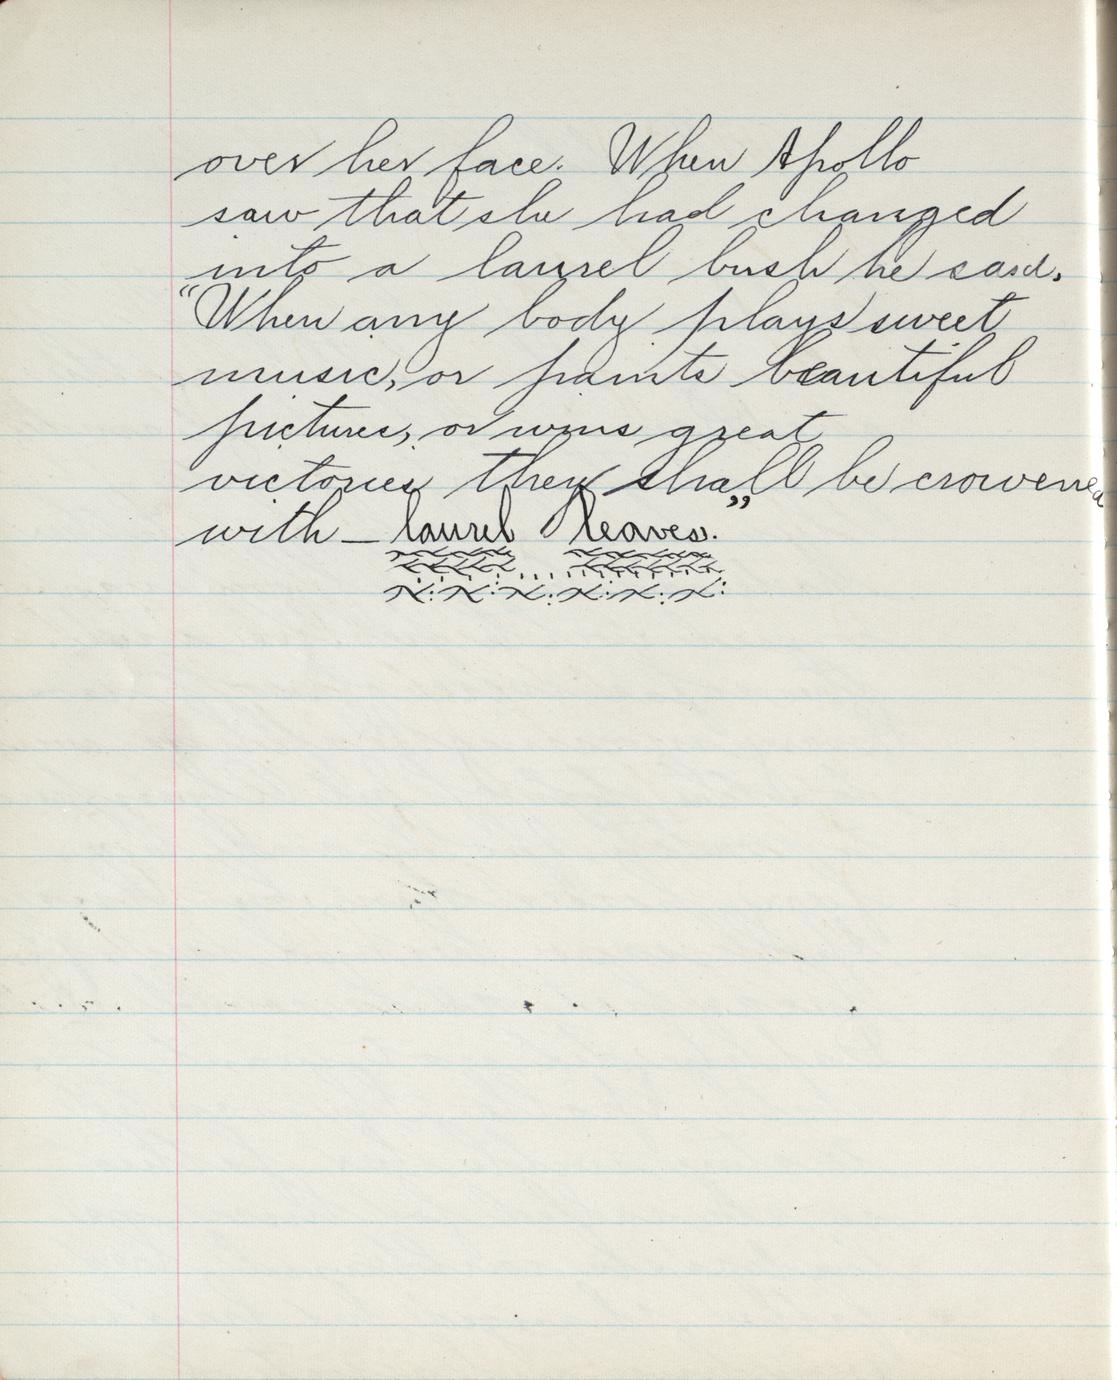 over her face. When Apollo
saw that she had changed
into a laurel bush he said,
“When any body plays sweet
music, or paints beautiful
pictures, or wins great
victories they shall be crowened
with – laurel leaves.”